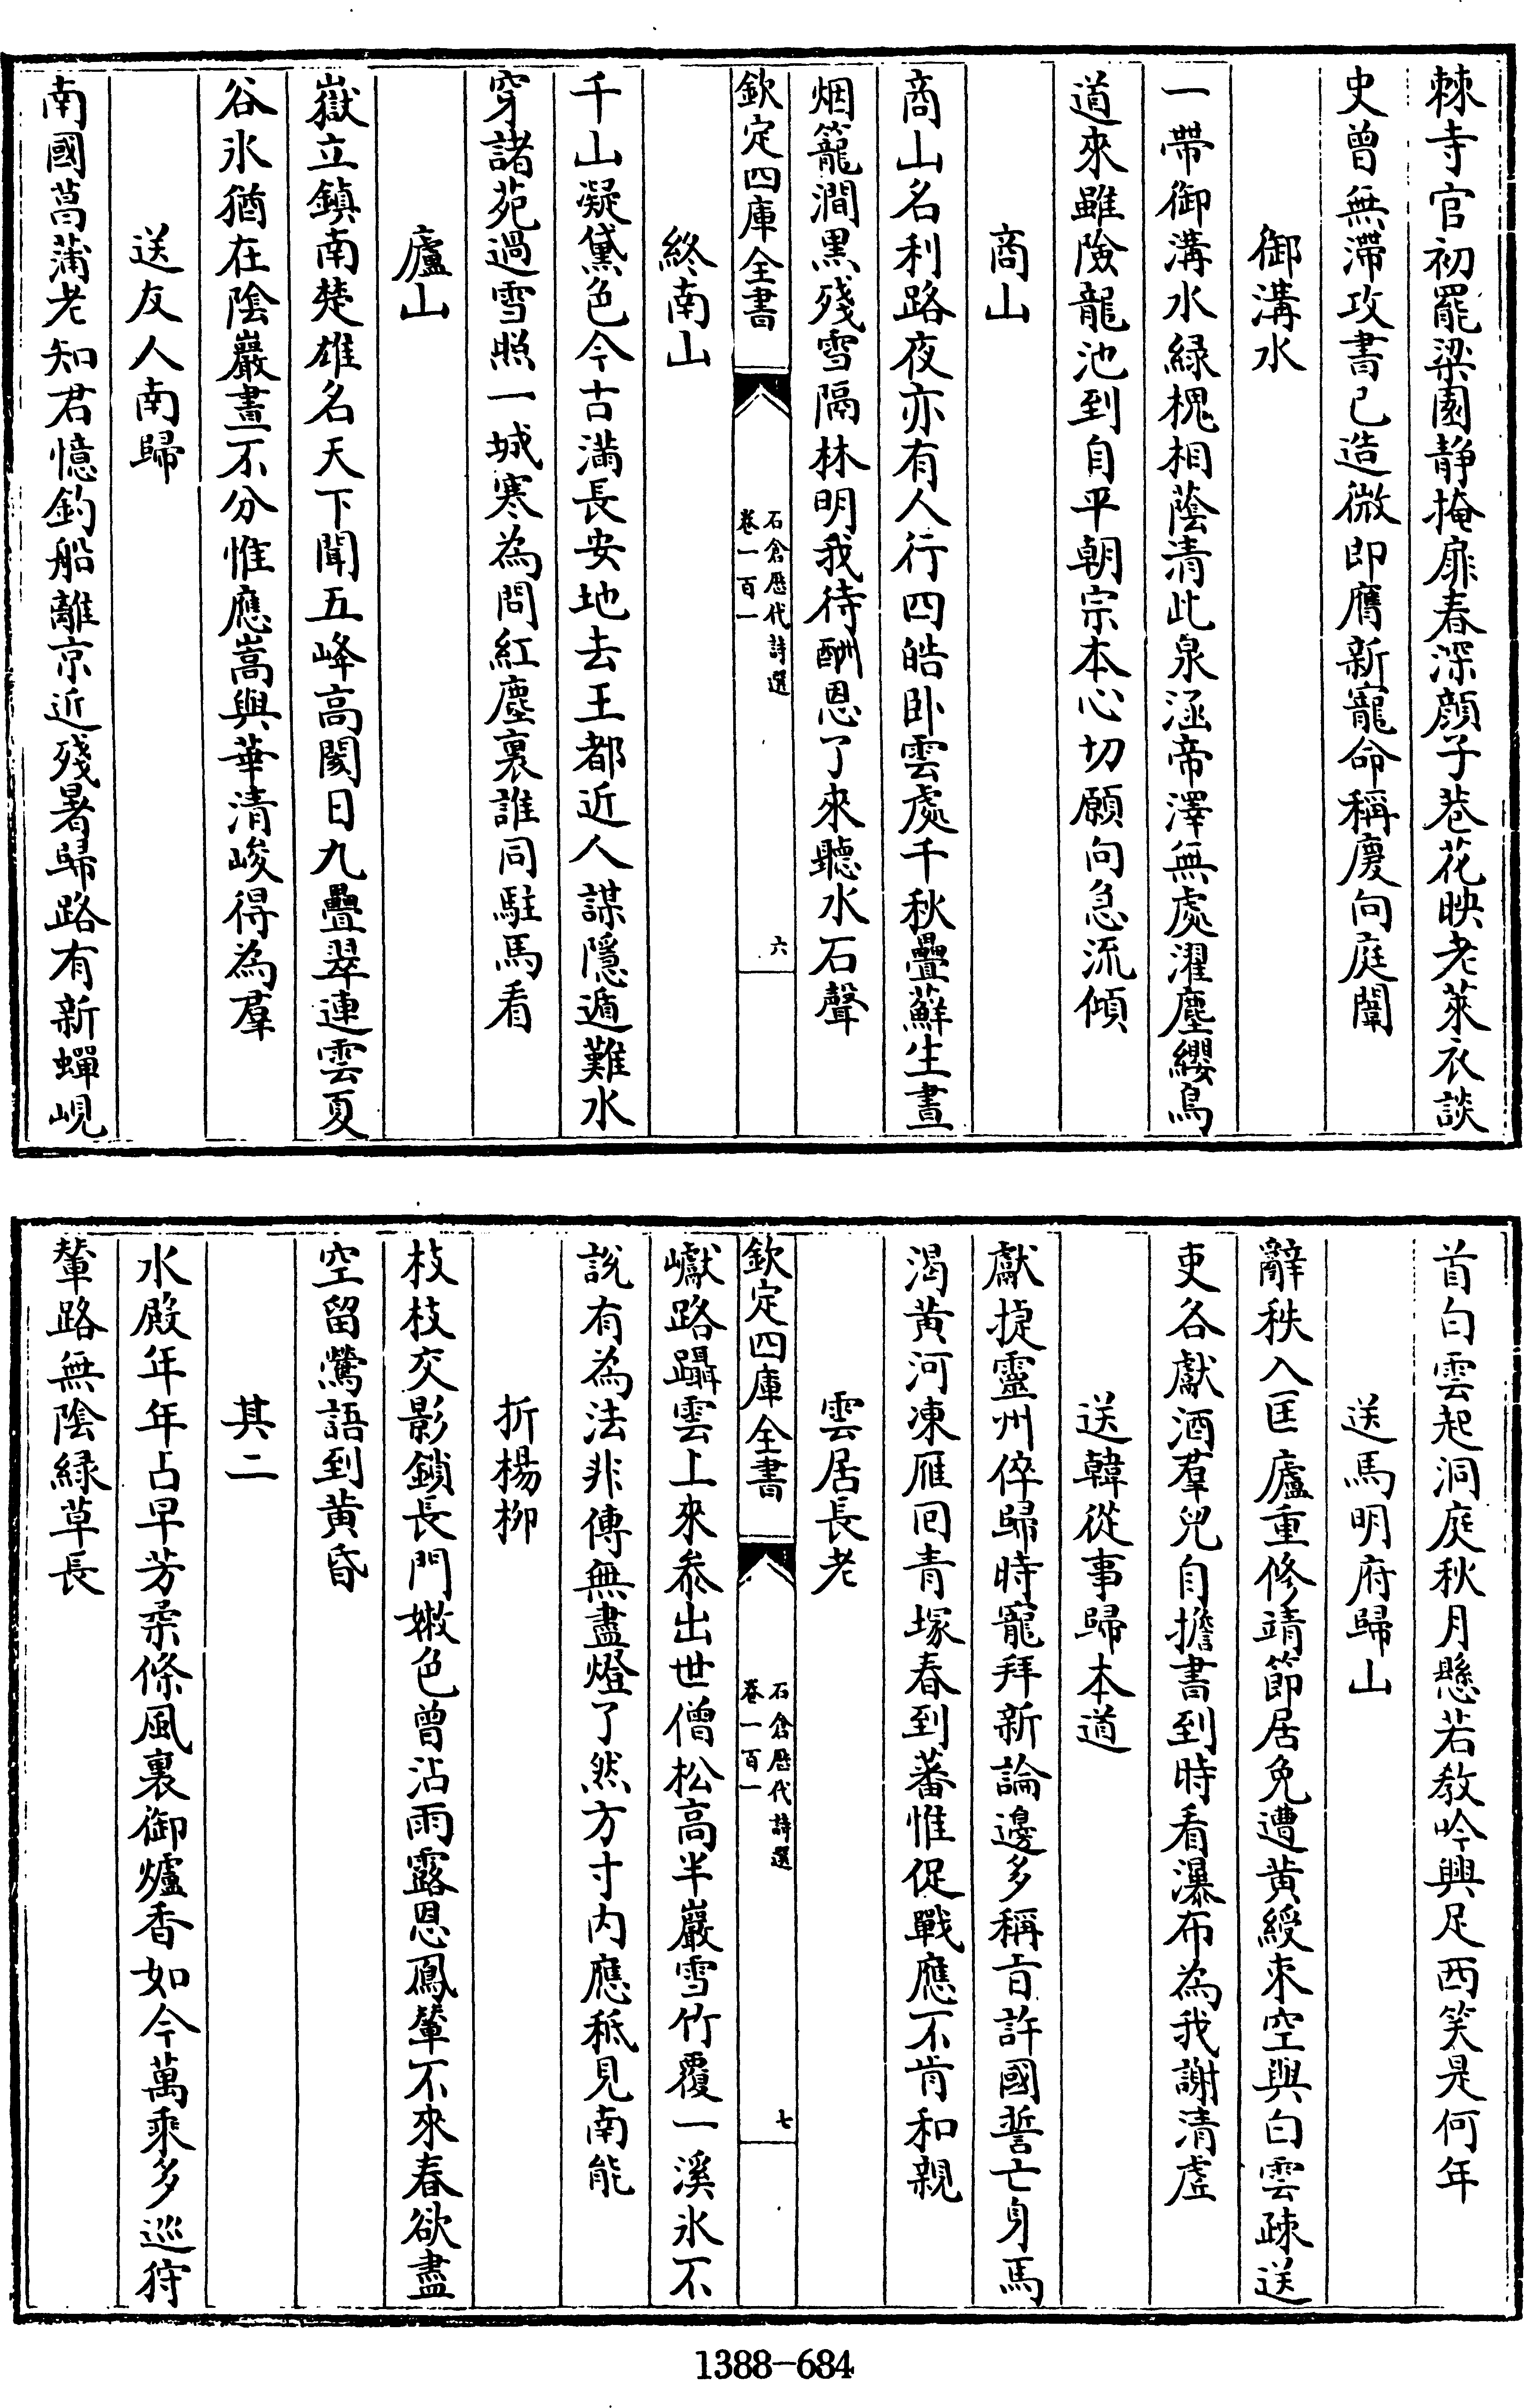 棘寺官初罷梁園静掩扉春深顔子巷花映老萊衣談
史曾無滯攻書已造微即膺新寵命稱慶向庭闈
御溝水
一帶御溝水緑槐相蔭清此泉涵帝澤無處濯塵纓鳥
道來雖險龍池到自平朝宗本心切願向急流傾
商山
商山名利路夜亦有人行四皓卧雲處千秋疊蘚生晝
烟籠澗黒殘雪隔林明我待酬恩了來聽水石聲
欽定四庫全書
石倉歴代詩選
卷一百一
六
終南山
千山凝黛色今古滿長安地去王都近人謀隱遁難水
穿諸苑過雪照一城寒為問紅塵裏誰同駐馬看
廬山
嶽立鎮南楚雄名天下聞五峰高閡日九疊翠連雲夏
谷氷猶在陰巖晝不分惟應嵩與華清峻得為羣
送友人南歸
南國菖蒲老知君憶釣船離京近殘暑歸路有新蟬峴
首白雲起洞庭秋月懸若教吟興足西笑是何年
送馬明府歸山
辭秩入匡廬重修靖節居免遭黄綬束空與白雲疎送
吏各獻酒羣兒自擔書到時看瀑布為我謝清虛
送韓從事歸本道
獻捷靈州倅歸時寵拜新論邊多稱旨許國誓亡身馬
渴黄河凍雁囘青塚春到蕃惟促戰應不肯和親
雲居長老
欽定四庫全書
石倉歴代詩選
卷一百一
七
巘路躡雲上來參出世僧松高半巖雪竹覆一溪氷不
說有為法非傳無盡燈了然方寸内應秪見南能
折楊柳
枝枝交影鎖長門嫩色曾沾雨露恩鳳輦不來春欲盡
空留鶯語到黄昏
其二
水殿年年占早芳柔條風裏御爐香如今萬乘多巡狩
輦路無陰緑草長
1388-684